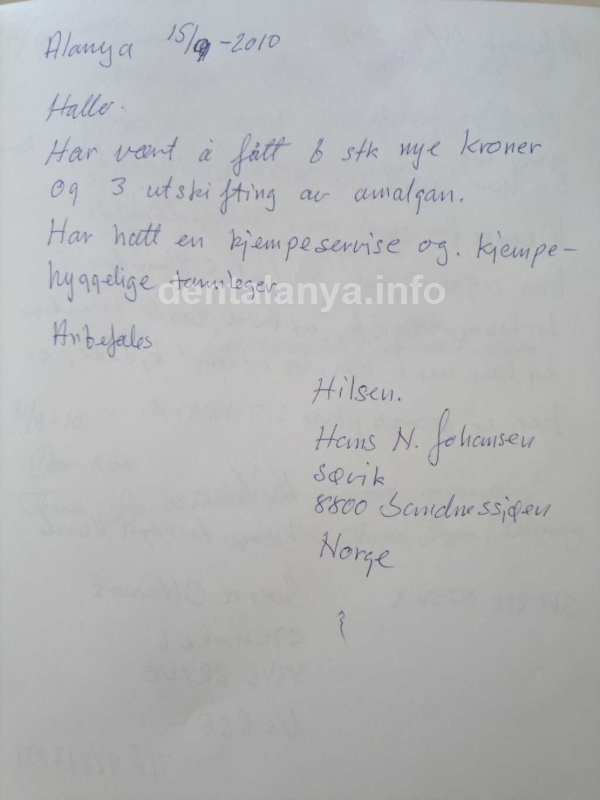 Alanya 15/9-2010
Hallo.
Har vært å fått 6 stk nye kroner
og 3 utskifting av amalgan.
Har hatt en kjempeservise og. kjempe-
hyggelige tannleger
dentalanya.info
Anbefales
Hilsen.
Hans N. Johansen
Søvik
8800 Sandnessjøen
Norge